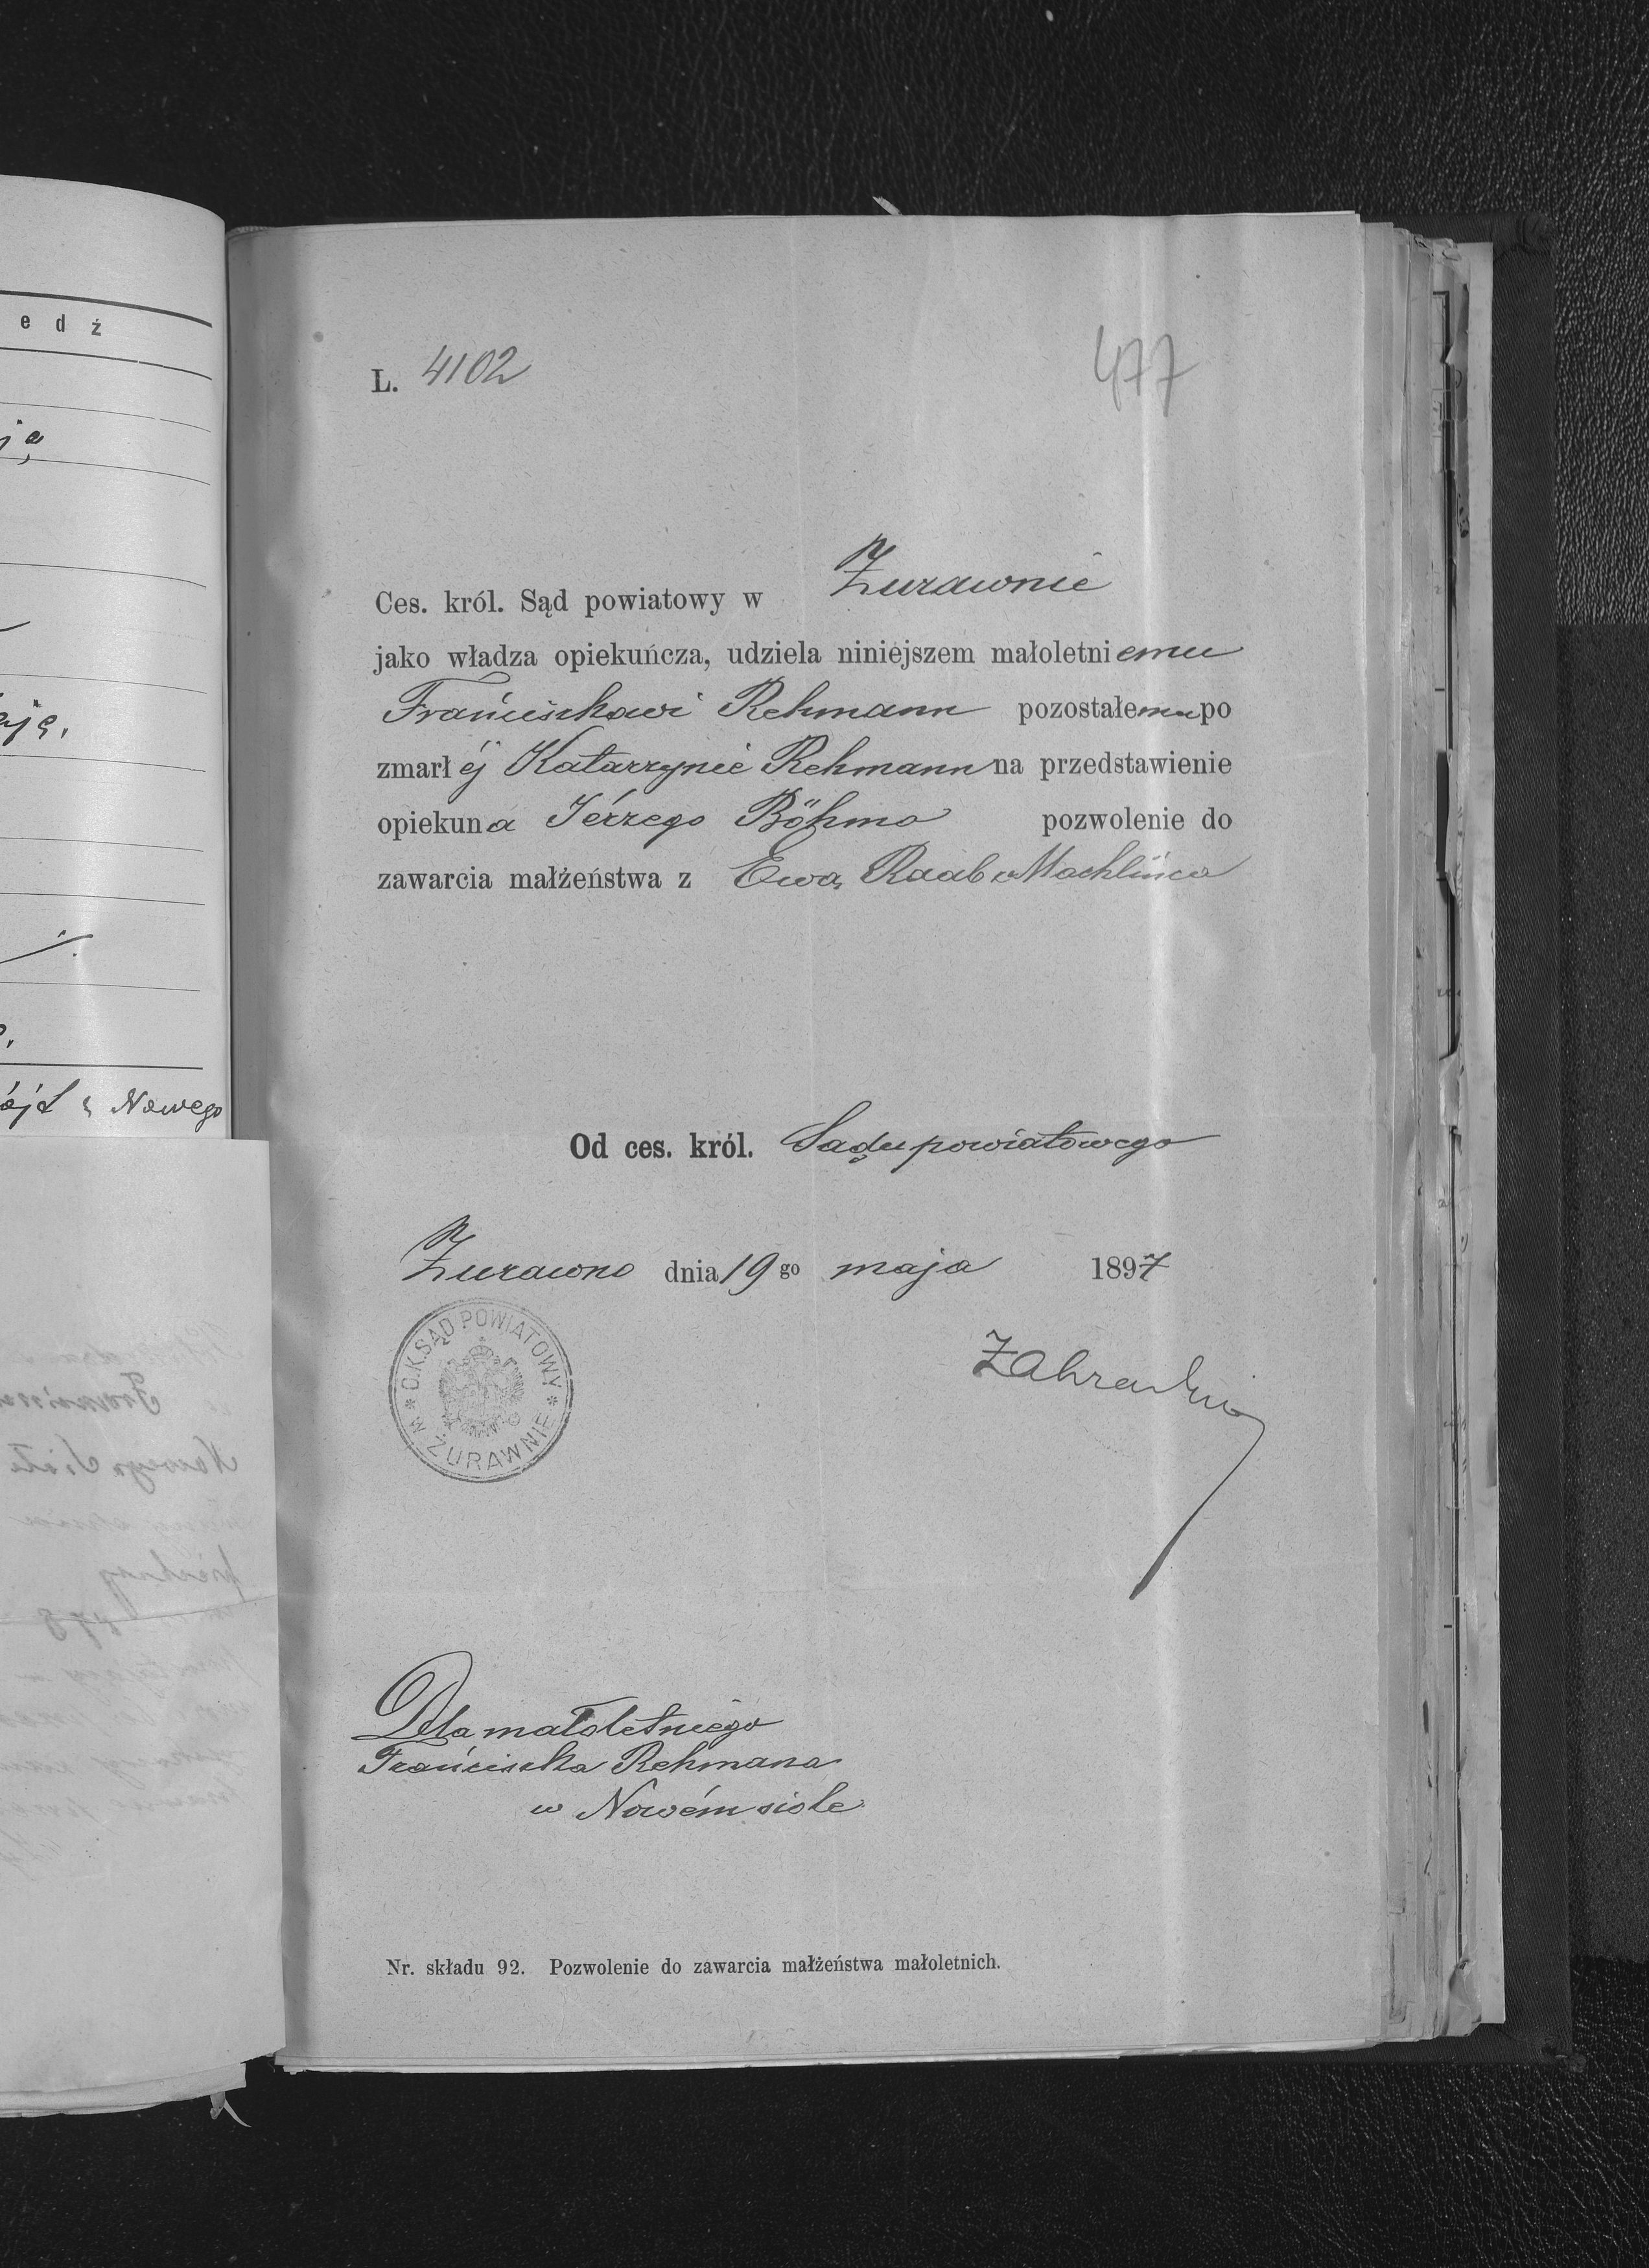 e d ź
ją
ają,
ójt z Nowego
L. 4102
477
Ces. król. Sąd powiatowy w Żurawnie
jako władza opiekuńcza, udziela niniejszem małoletniemu
Franciszkowi Rehmann pozostałemu po
zmarłej Katarzynie Rehmann na przedstawienie
opiekuna Jérzego Böhma pozwolenie do
zawarcia małżeństwa z Ewą Raab z Machlińca
Od ces. król. Sądu powiatowego
Żurawno dnia 19go maja 1897
C.K. SĄD POWIATOWY
W ŻURAWNIE
Dla małoletniego
Franciszka Rehmana
w Nowém siole
Nr. składu 92. Pozwolenie do zawarcia małżeństwa małoletnich.